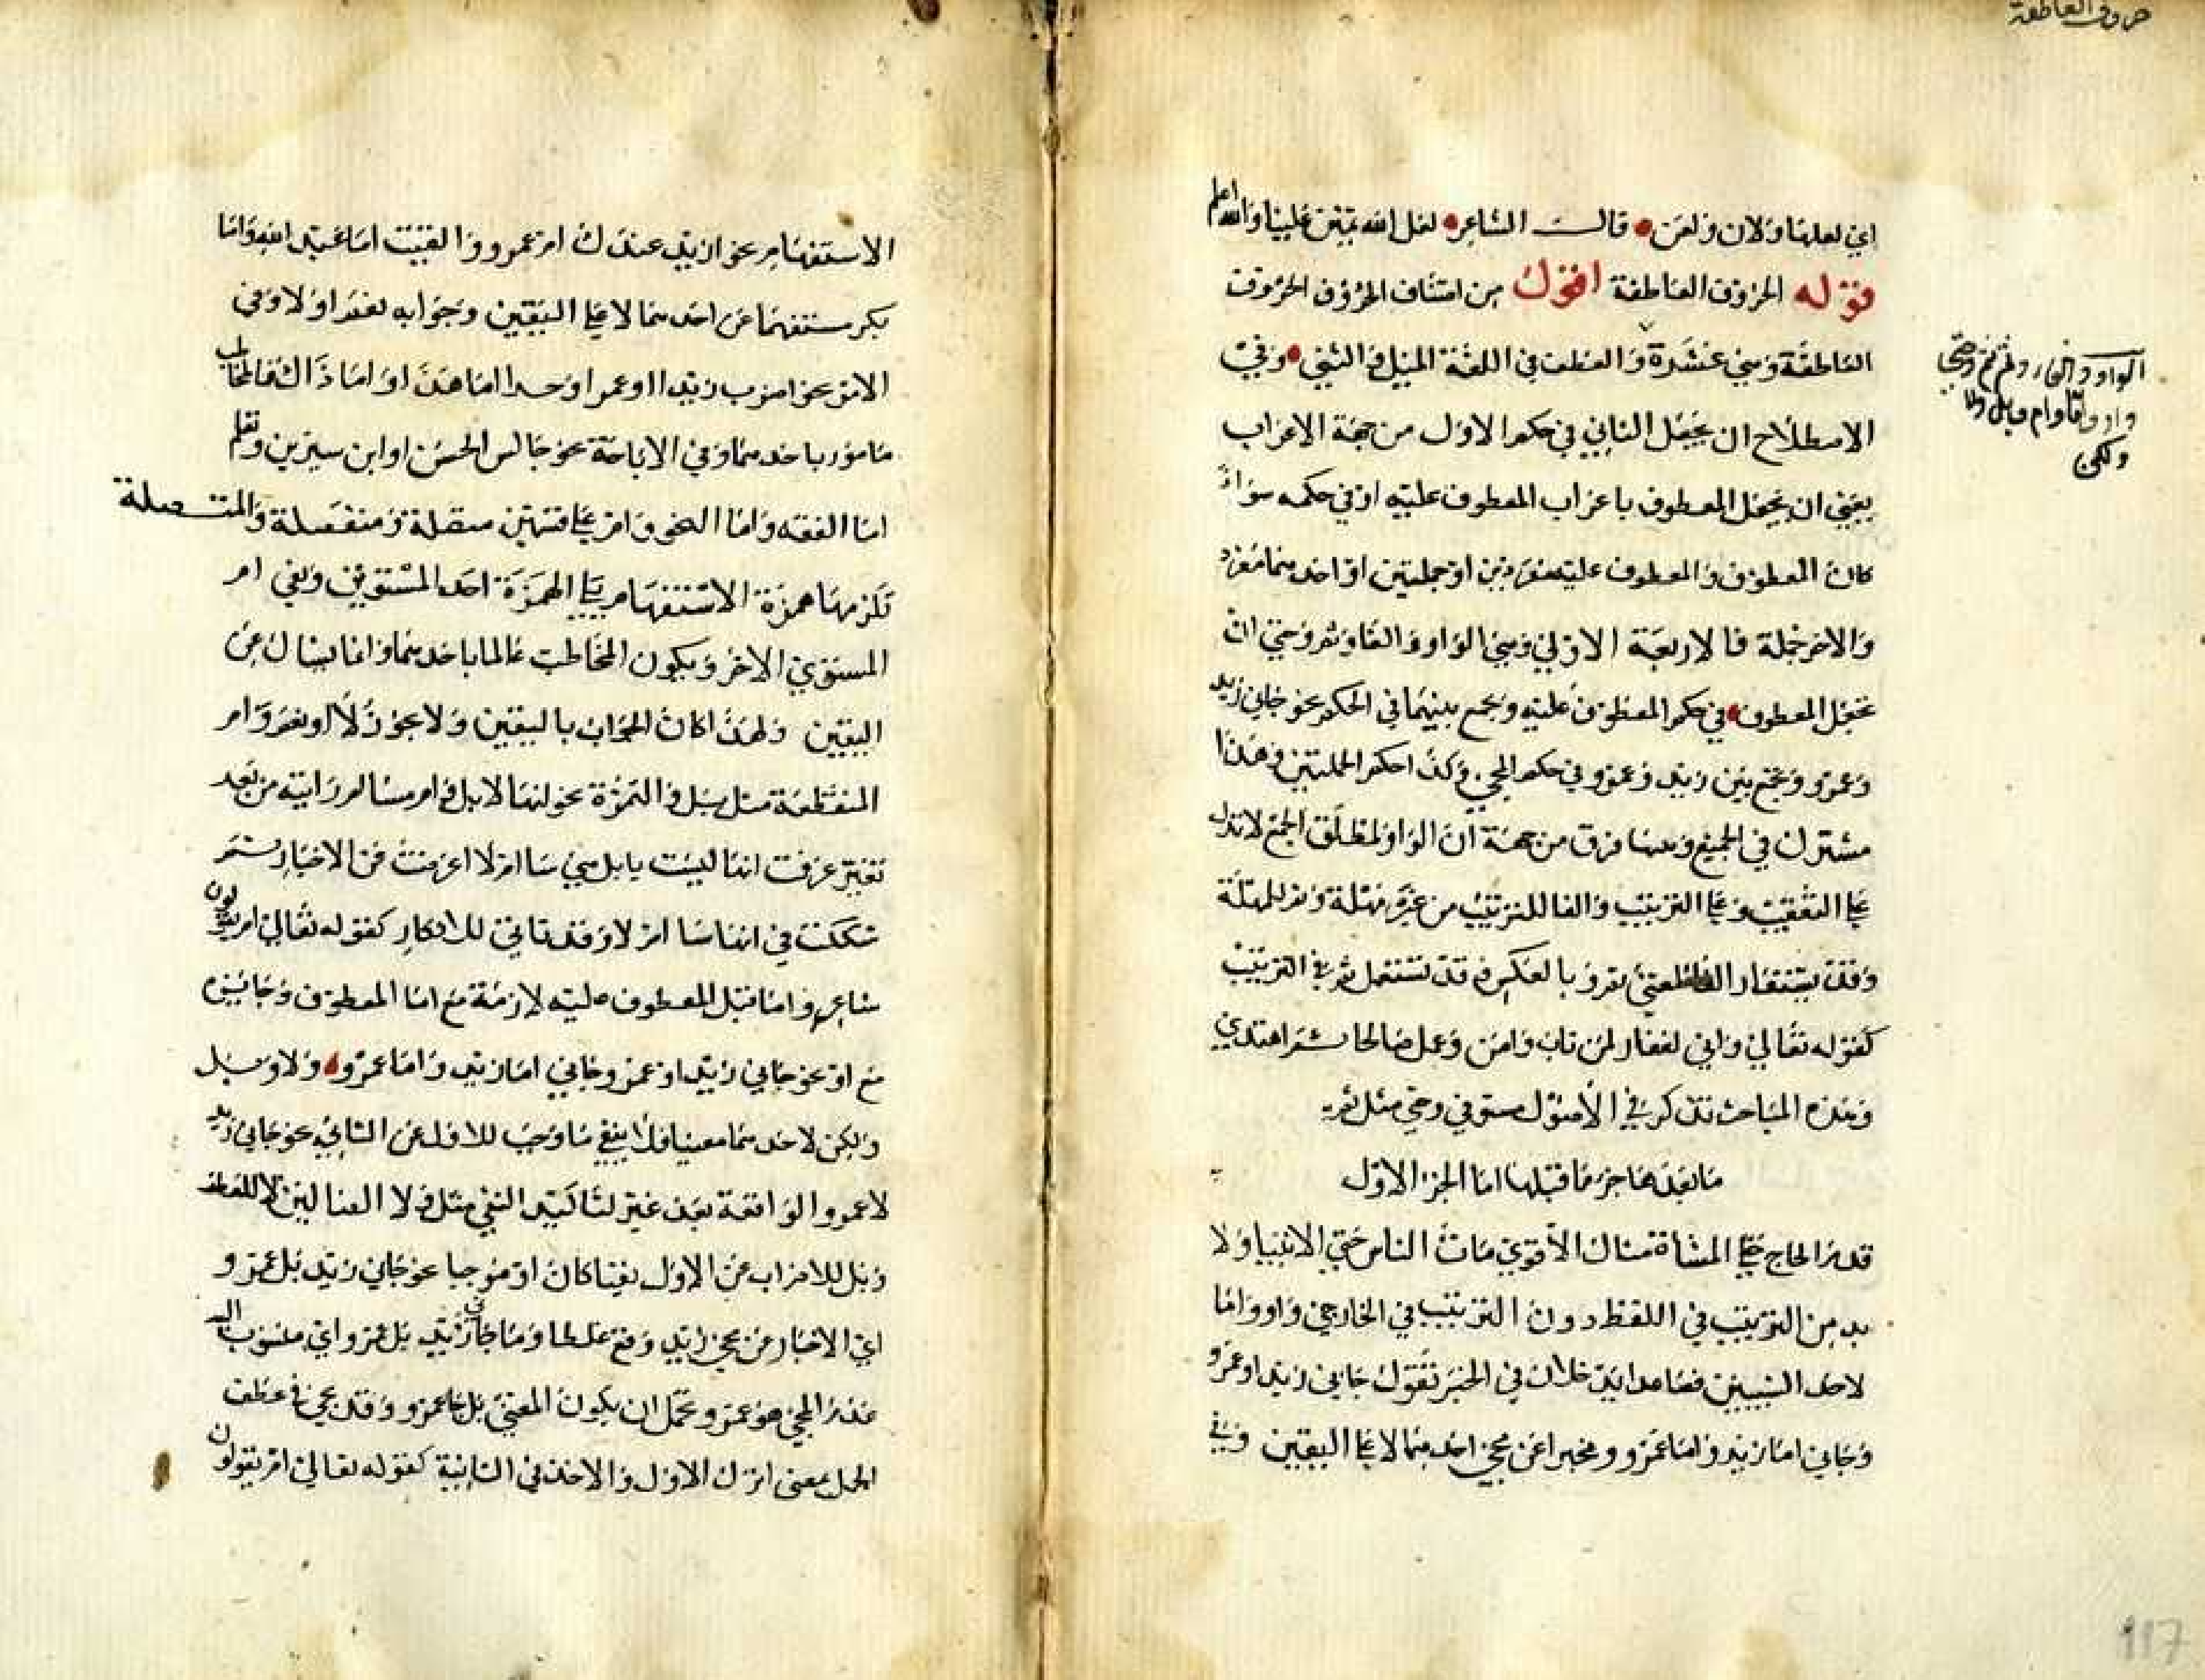 حروف العاطفة
اي لعلها ولان ولعن قالت الشاعر لعل الله يمنن علينا والله اعلم
قوله الحروف العاطفة اقول من اصناف الحروف الحروف
العاطفة وهي عشرة والعطف في اللغة الميل في الشي وفي
الاصطلاح ان يجعل الثاني في حكم الاول من جهة الاعراب
يعني ان يجعل المعطوف باعراب المعطوف عليه او في حكمه سواء
كان المعطوف والمعطوف عليه مفردين او جملتين او احدهما مفرد
والاخر جملة فالاربعة الاولي وهي الواو والفا وثم وحتي ان
تجعل المعطوف في حكم المعطوف عليه وتجمع بينهما في الحكم نحو جاني زيد
وعمرو وتجمع بين زيد وعمرو في حكم المجي وكذا حكم الجملتين وهذا
مشترك في الجميع وبينها فرق من جهة ان الواو لمطلق الجمع لا تدل
علي التعقيب وعلي الترتيب والفا للترتيب من غير مهلة وثم للمهلة
وقد يستعار الفا لمعني ثم وبالعكس وقد تستعمل ثم في الترتيب
كقوله تعالي واني لغفار لمن تاب وامن وعمل صالحا ثم اهتدي
وهذه المباحث تذكر في الاصول مستوفي وحتي مثل ثم
ما بعدها جز ما قبلها اما الجز الاول
قدم الحاج حتي المشاة مثال الاقوي مات الناس حتي الانبيا ولا
بد من الترتيب في اللفظ دون الترتيب في الخارجي واو واما
لاحد الشييين فصاعدا يدخلان في الخبر تقول جاني زيد او عمرو
وجاني اما زيد واما عمرو ومخبرا عن مجي احدهما لا علي اليقين وفي
الواو والفا وثم وحتي
واو واما وام وبل ولا
ولكن
الاستفهام نحو ازيد عندك ام عمرو والقيت اما عبد الله واما
بكر مستفهما عن احدهما لا علي اليقين وجوابه نعم او لا وفي
الامر نحو اضرب زيدا او عمرا وخذ اما هذا او اما ذاك فالمخاطب
مامور باحدهما وفي الاباحة نحو جالس الحسن او ابن سيرين وتعلم
اما الفقه واما النحو وام علي قسمين متصلة ومنفصلة والمتصلة
تلزمها همزة الاستفهام يلي الهمزة احد المستويين ويلي ام
المستوي الاخر ويكون المخاطب عالما باحدهما وانما يسال عن
اليقين ولهذا كان الجواب باليقين ولا يجوز لا او نعم وام
المنقطعة مثل بل والهمزة نحو انها لابل ام شا لم رايته من بعد
تغير عرفت انها ليست بابل هي شا ام لا اعرضت عن الاخبار ثم
شككت في انها شا ام لا وقد تاتي للانكار كقوله تعالي ام يقولون
شاعر واما قبل المعطوف عليه لازمة مع اما المعطوف وجايزه
مع او نحو جاني زيد او عمرو وجاني اما زيد واما عمرو ولا وبل
ولكن لاحدهما معينا ولا ينفي ما وجب للاول عن الثاني نحو جاني زيد
لا عمرو الواقعة بعد غير لتاكيد النفي مثل ولا الضالين لا للعطف
وبل للاضراب عن الاول نفيا كان او موجبا نحو جاني زيد بل عمرو
اي الاخبار عن مجي زيد وقع غلطا وما جاني زيد بل عمرو اي منسوب اليه
عدم المجي هو عمرو ويحتمل ان يكون المعني بل جا عمرو وقد يجي في عطف
الجمل بمعني اترك الاول والاخذ في الثانية كقوله تعالي ام يقولون
117